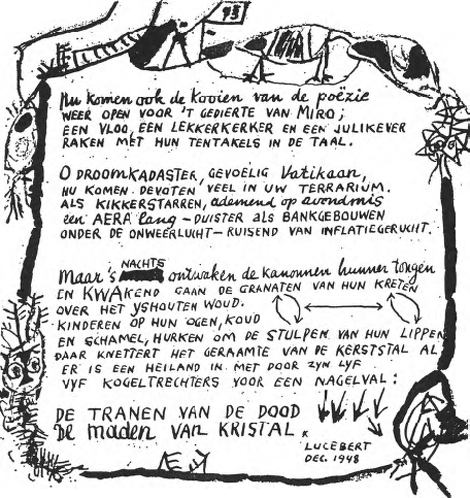 43
Nu komen ook de kooien van de poëzie
WEER OPEN VOOR 'T GEDIERTE VAN MIRO;
EEN VLOO, EEN LEKKERKERKER EN EEN JULIKEVER
RAKEN MET HUN TENTAKELS IN DE TAAL.
O DROOMKADASTER, GEVOELIG Vatikaan,
NU KOMEN DEVOTEN VEEL IN UW TERRARIUM.
ALS KIKKERSTARREN, ademend op avondmis
een AERA lang – DUISTER ALS BANKGEBOUWEN
ONDER DE ONWEERLUCHT – RUISEND VAN INFLATIEGERUCHT.
Maar 's NACHTS ontwaken de kanonnen hunner tongen
EN KWAkend GAAN DE GRANATEN VAN HUN KRETEN
OVER HET YSHOUTEN WOUD.
KINDEREN OP HUN OGEN, KOUD
EN SCHAMEL, HURKEN OM DE STULPEN VAN HUN LIPPEN
DAAR KNETTERT HET GERAAMTE VAN DE KERSTSTAL AL
ER IS EEN HEILAND IN MET DOOR ZYN LYF
VYF KOGELTRECHTERS VOOR EEN NAGELVAL:
DE TRANEN VAN DE DOOD
De maden VAN KRISTAL.
LUCEBERT
DEC. 1948